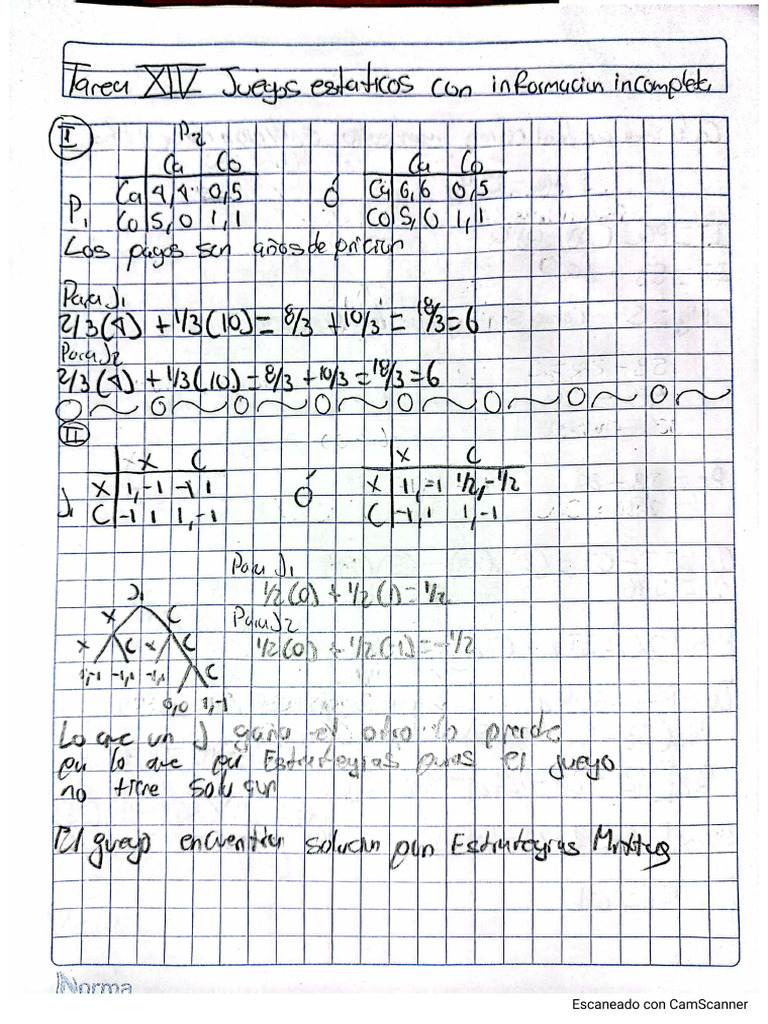 Tarea XIV Juegos estaticos con informacion incompleta
I
P2
Ca Co Ca Co
P1 Ca 4,4 0,5 ó Ca 6,6 0,5
Co 5,0 1,1 Co 5,0 1,1
Los pagos son años de pricion
Para J1
2/3(4) + 1/3(10) = 8/3 + 10/3 = 18/3 = 6
Para J2
2/3(4) + 1/3(10) = 8/3 + 10/3 = 18/3 = 6
II
X C X C
J1 X 1,-1 -1 1 ó X 1,-1 1/2,-1/2
C -1 1 1,-1 C -1,1 1,-1
Para J1
1/2(0) + 1/2(1) = 1/2
Para J2
1/2(0) + 1/2(-1) = -1/2
J1
X C
X C X C
1,-1 -1,1 -1,1 C
0,0 1,-1
Lo que un J gana el otro lo pierde
en lo que en Estrategias puras el juego
no tiene solucion
El juego encuentra solucion con Estrategias Mixtas
Norma
Escaneado con CamScanner